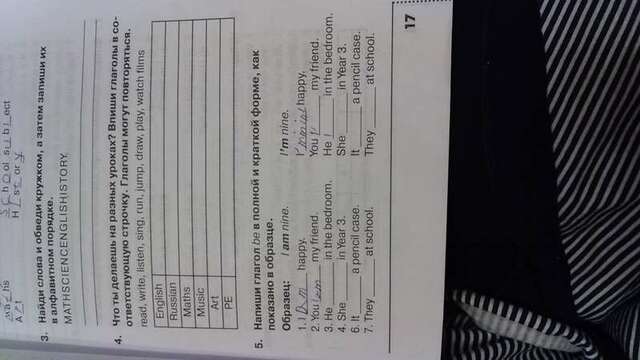 Ma_t_hs School subject
Art History
3. Найди слова и обведи кружком, а затем запиши их
в алфавитном порядке.
MATHSCIENCENGLISHISTORY
4. Что ты делаешь на разных уроках? Впиши глаголы в со-
ответствующую строчку. Глаголы могут повторяться.
read, write, listen, sing, run, jump, draw, play, watch films
English
Russian
Maths
Music
Art
PE
5. Напиши глагол be в полной и краткой форме, как
показано в образце.
Образец: I am nine. I'm nine.
1. I am happy. happy.
2. You ____ my friend. You ____ my friend.
3. He ____ in the bedroom. He ____ in the bedroom.
4. She ____ in Year 3. She ____ in Year 3.
6. It ____ a pencil case. It ____ a pencil case.
7. They ____ at school. They ____ at school.
17